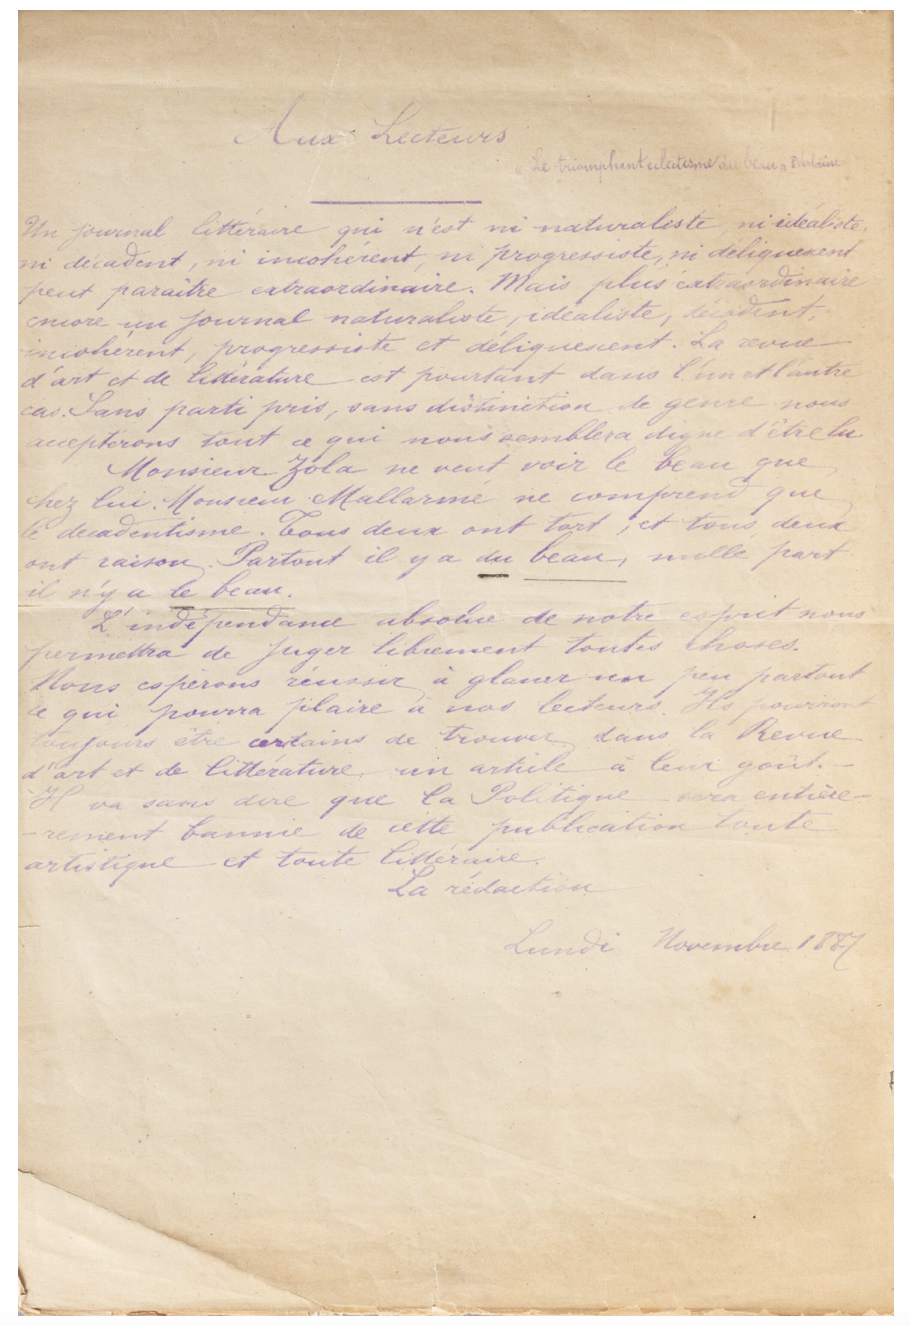 Aux Lecteurs
« Le triomphant éclectisme du beau »
Un journal littéraire qui n'est ni naturaliste, ni idéaliste,
ni décadent, ni incohérent, ni progressiste, ni déliquescent
peut paraître extraordinaire. Mais plus extraordinaire
encore un journal naturaliste, idéaliste, décadent,
incohérent, progressiste et déliquescent. La revue
d'art et de littérature est pourtant dans l'un et l'autre
cas. Sans parti pris, sans distinction de genre nous
accepterons tout ce qui nous semblera digne d'être lu
Monsieur Zola ne veut voir le beau que
chez lui. Monsieur Mallarmé ne comprend que
le decadentisme. Tous deux ont tort ; et tous deux
ont raison. Partout il y a du beau, nulle part
il n'y a le beau.
L'indépendance absolue de notre esprit nous
permettra de juger librement toutes choses.
Nous espérons réussir à glaner un peu partout
ce qui pourra plaire à nos lecteurs. Ils pourront
toujours être certains de trouver dans la Revue
d'art et de littérature un article à leur goût. -
Il va sans dire que la Politique sera entière-
-rement bannie de cette publication toute
artistique et toute littéraire.
La rédaction
Lundi Novembre 1887